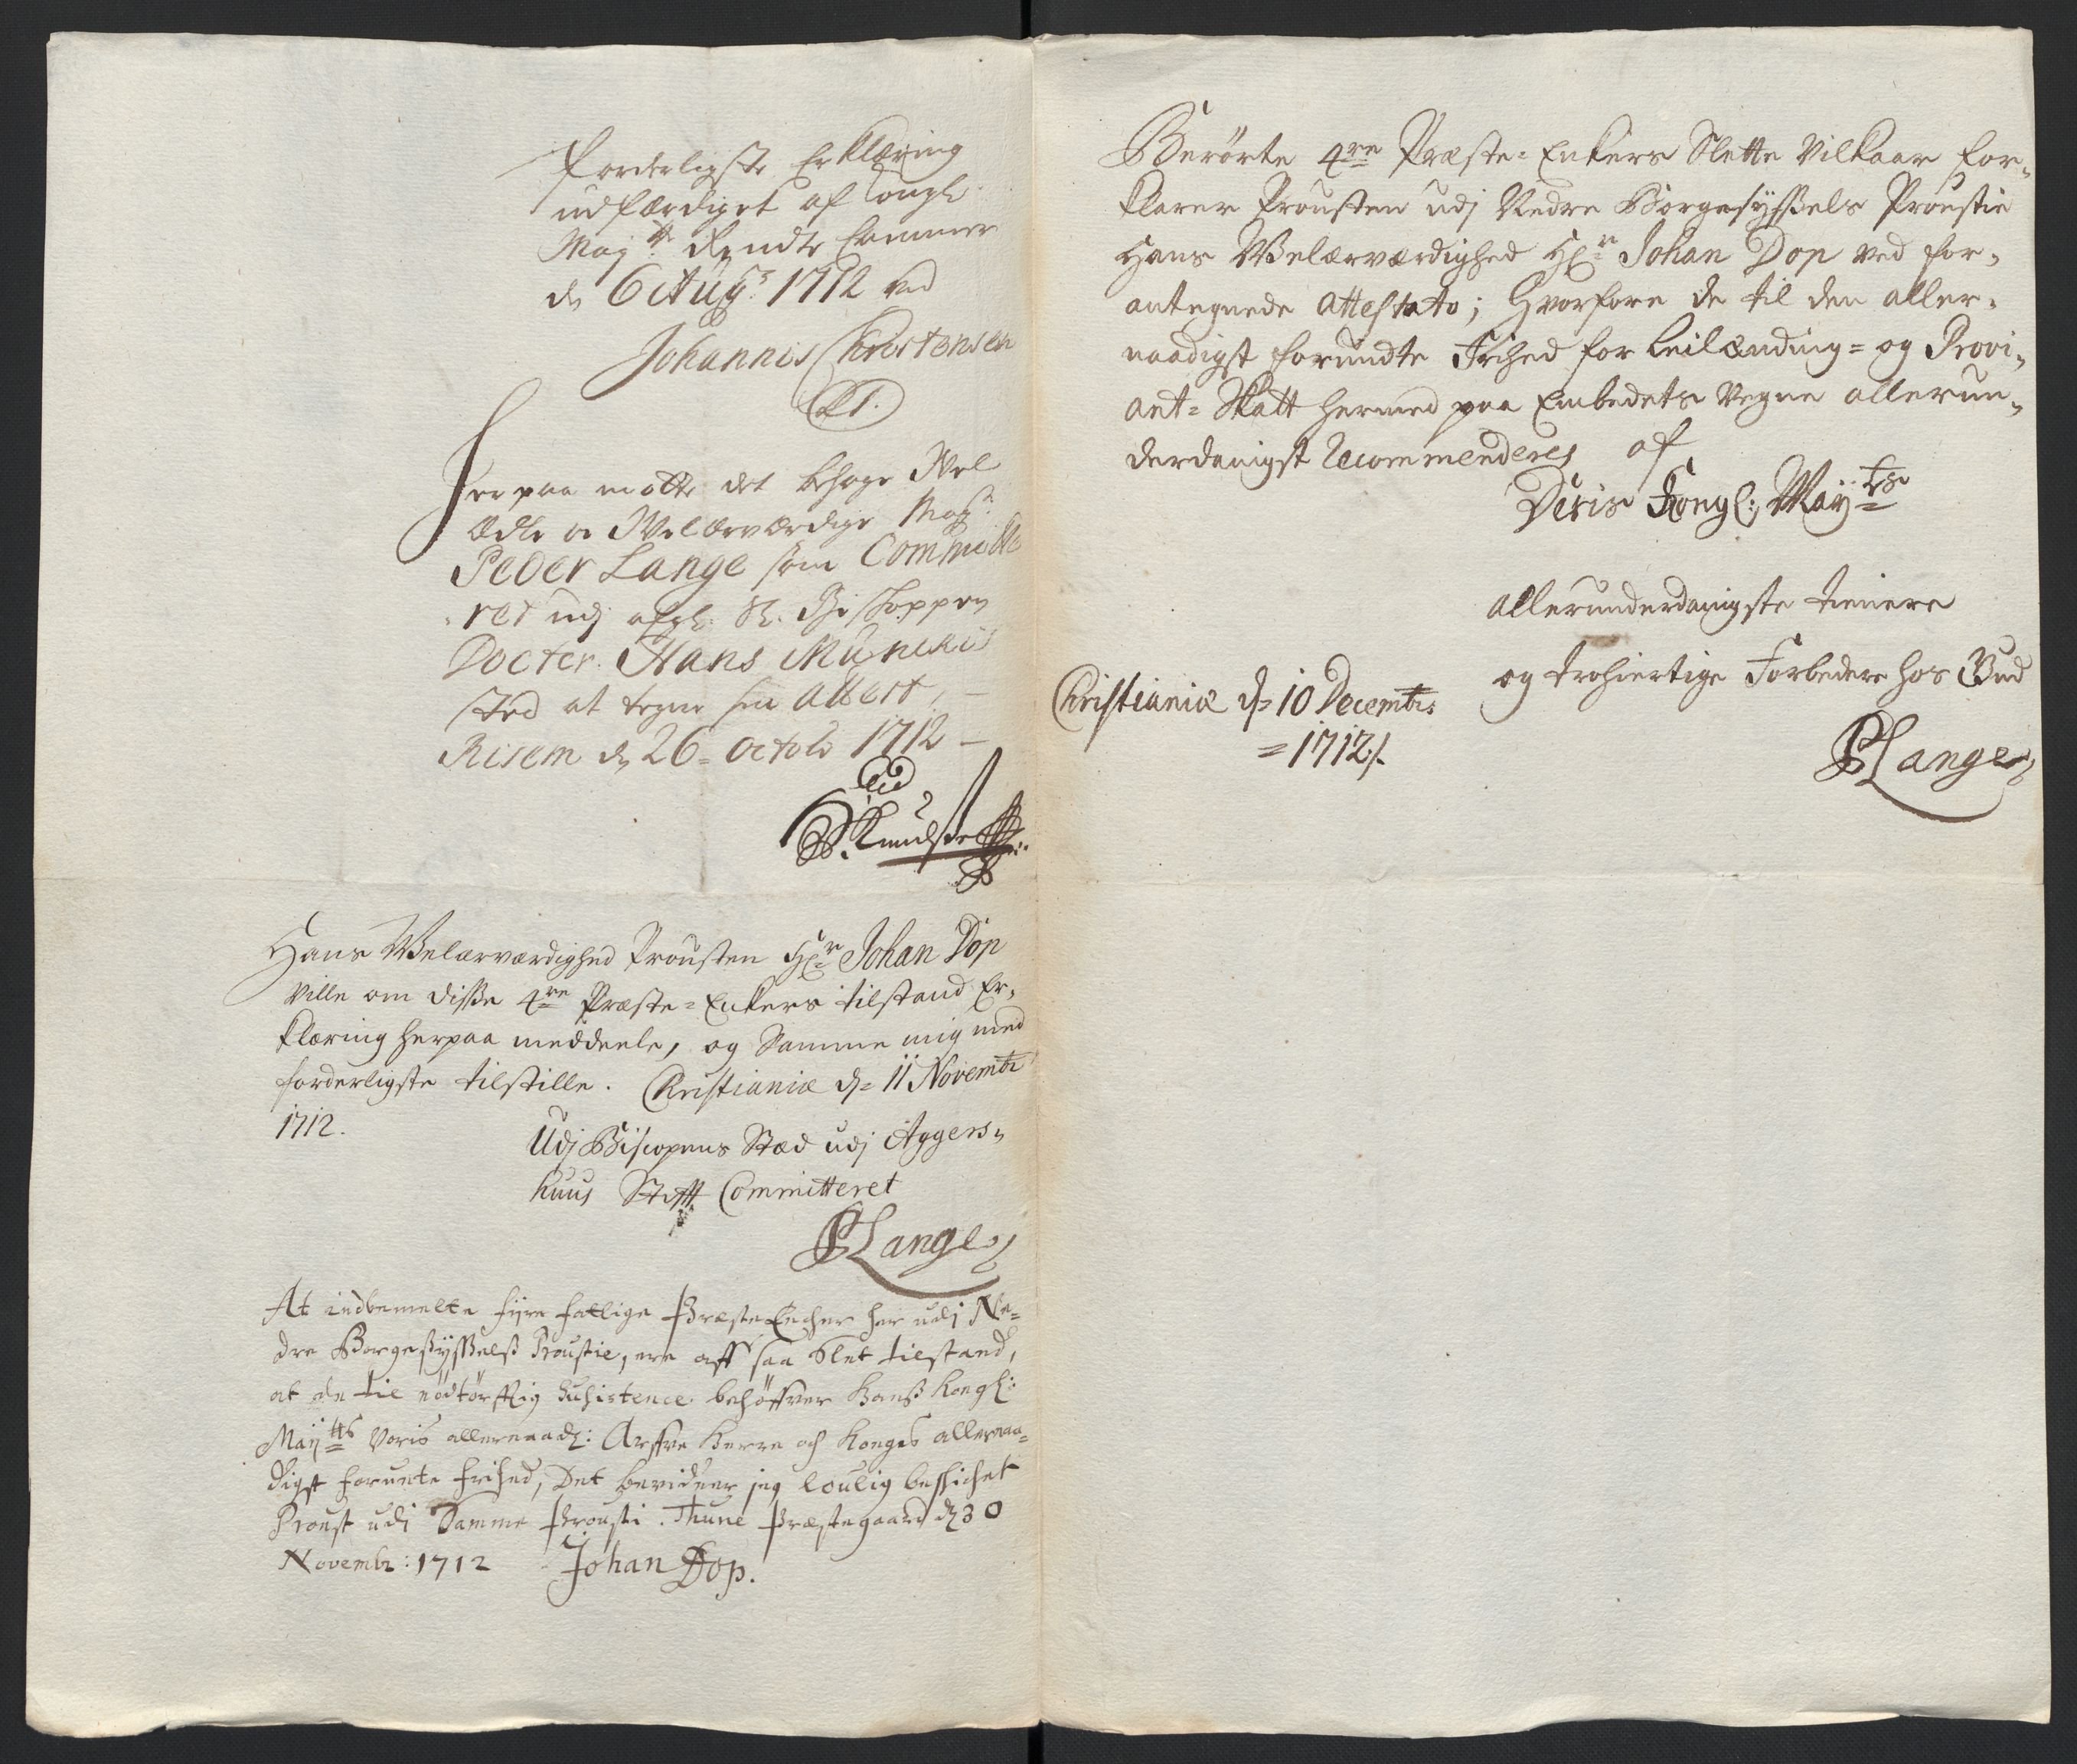 forderligste Erklæring
udferdiget af Kongl:
Maj:tt Rendte Cammer
d. 6 Aug: 1712 ved
Johannis Christensen

Herpaa motte det behage Wel
Ædle og Welærværdige Mag:r
Peder Lange som Committe
ret udj afgl: Sl. Bischoppen
Docter Hans Munchis
sted at tegne sin Attest,
Risem d. 26 = Octobr 1712 –
Knudsen

Hans Welærværdighed Prousten Hr: Johan Dop
Ville om disse 4re Præste=Enkers tilstand Er,
klæring herpaa meddeele, og Samme mig med
forderligste tilstille. Christianiæ d= 11 Novembr
1712.
Udj Biscopens Stæd udj Aggers,
huus Stifft Committeret
PLange

At indbemelte fyre fattige PræsteEncher her udj Ne=
dre Borgesysselß Proustie, ere aff saa Slet tilstand,
at de til nödtörfftig Subsistence behöffver Hanß Kongl:
Maytts Voris allernaad: Arffve Herre och Konges allernaa=
digst forunte frihed, Det beviduer jeg loulig beskichet
Proust udi Samme Prousti. Thune Præstegaard d. 30
Novembr: 1712 Johan Dop.

Berörte 4re Præste=Enkers Slette Vilkaar for,
klarer Prousten udj Nedre Borgesyssels Proustie
Hans Welærværdighed Hr: Johan Dop ved for,
antegnede Attestato; Hvorfore de til den aller,
naadigst forundte Frihed for Leilænding= og Provi,
ant=Skatt hermed paa Embedets Vegne allerun,
derdanigst Recommenderes af
Deris Kongl: Mayts
allerunderdanigste tienere
og trohiertige Forbedere hos Gud
Christianiæ d= 10 Decembr.
= 1712 /.
PLange